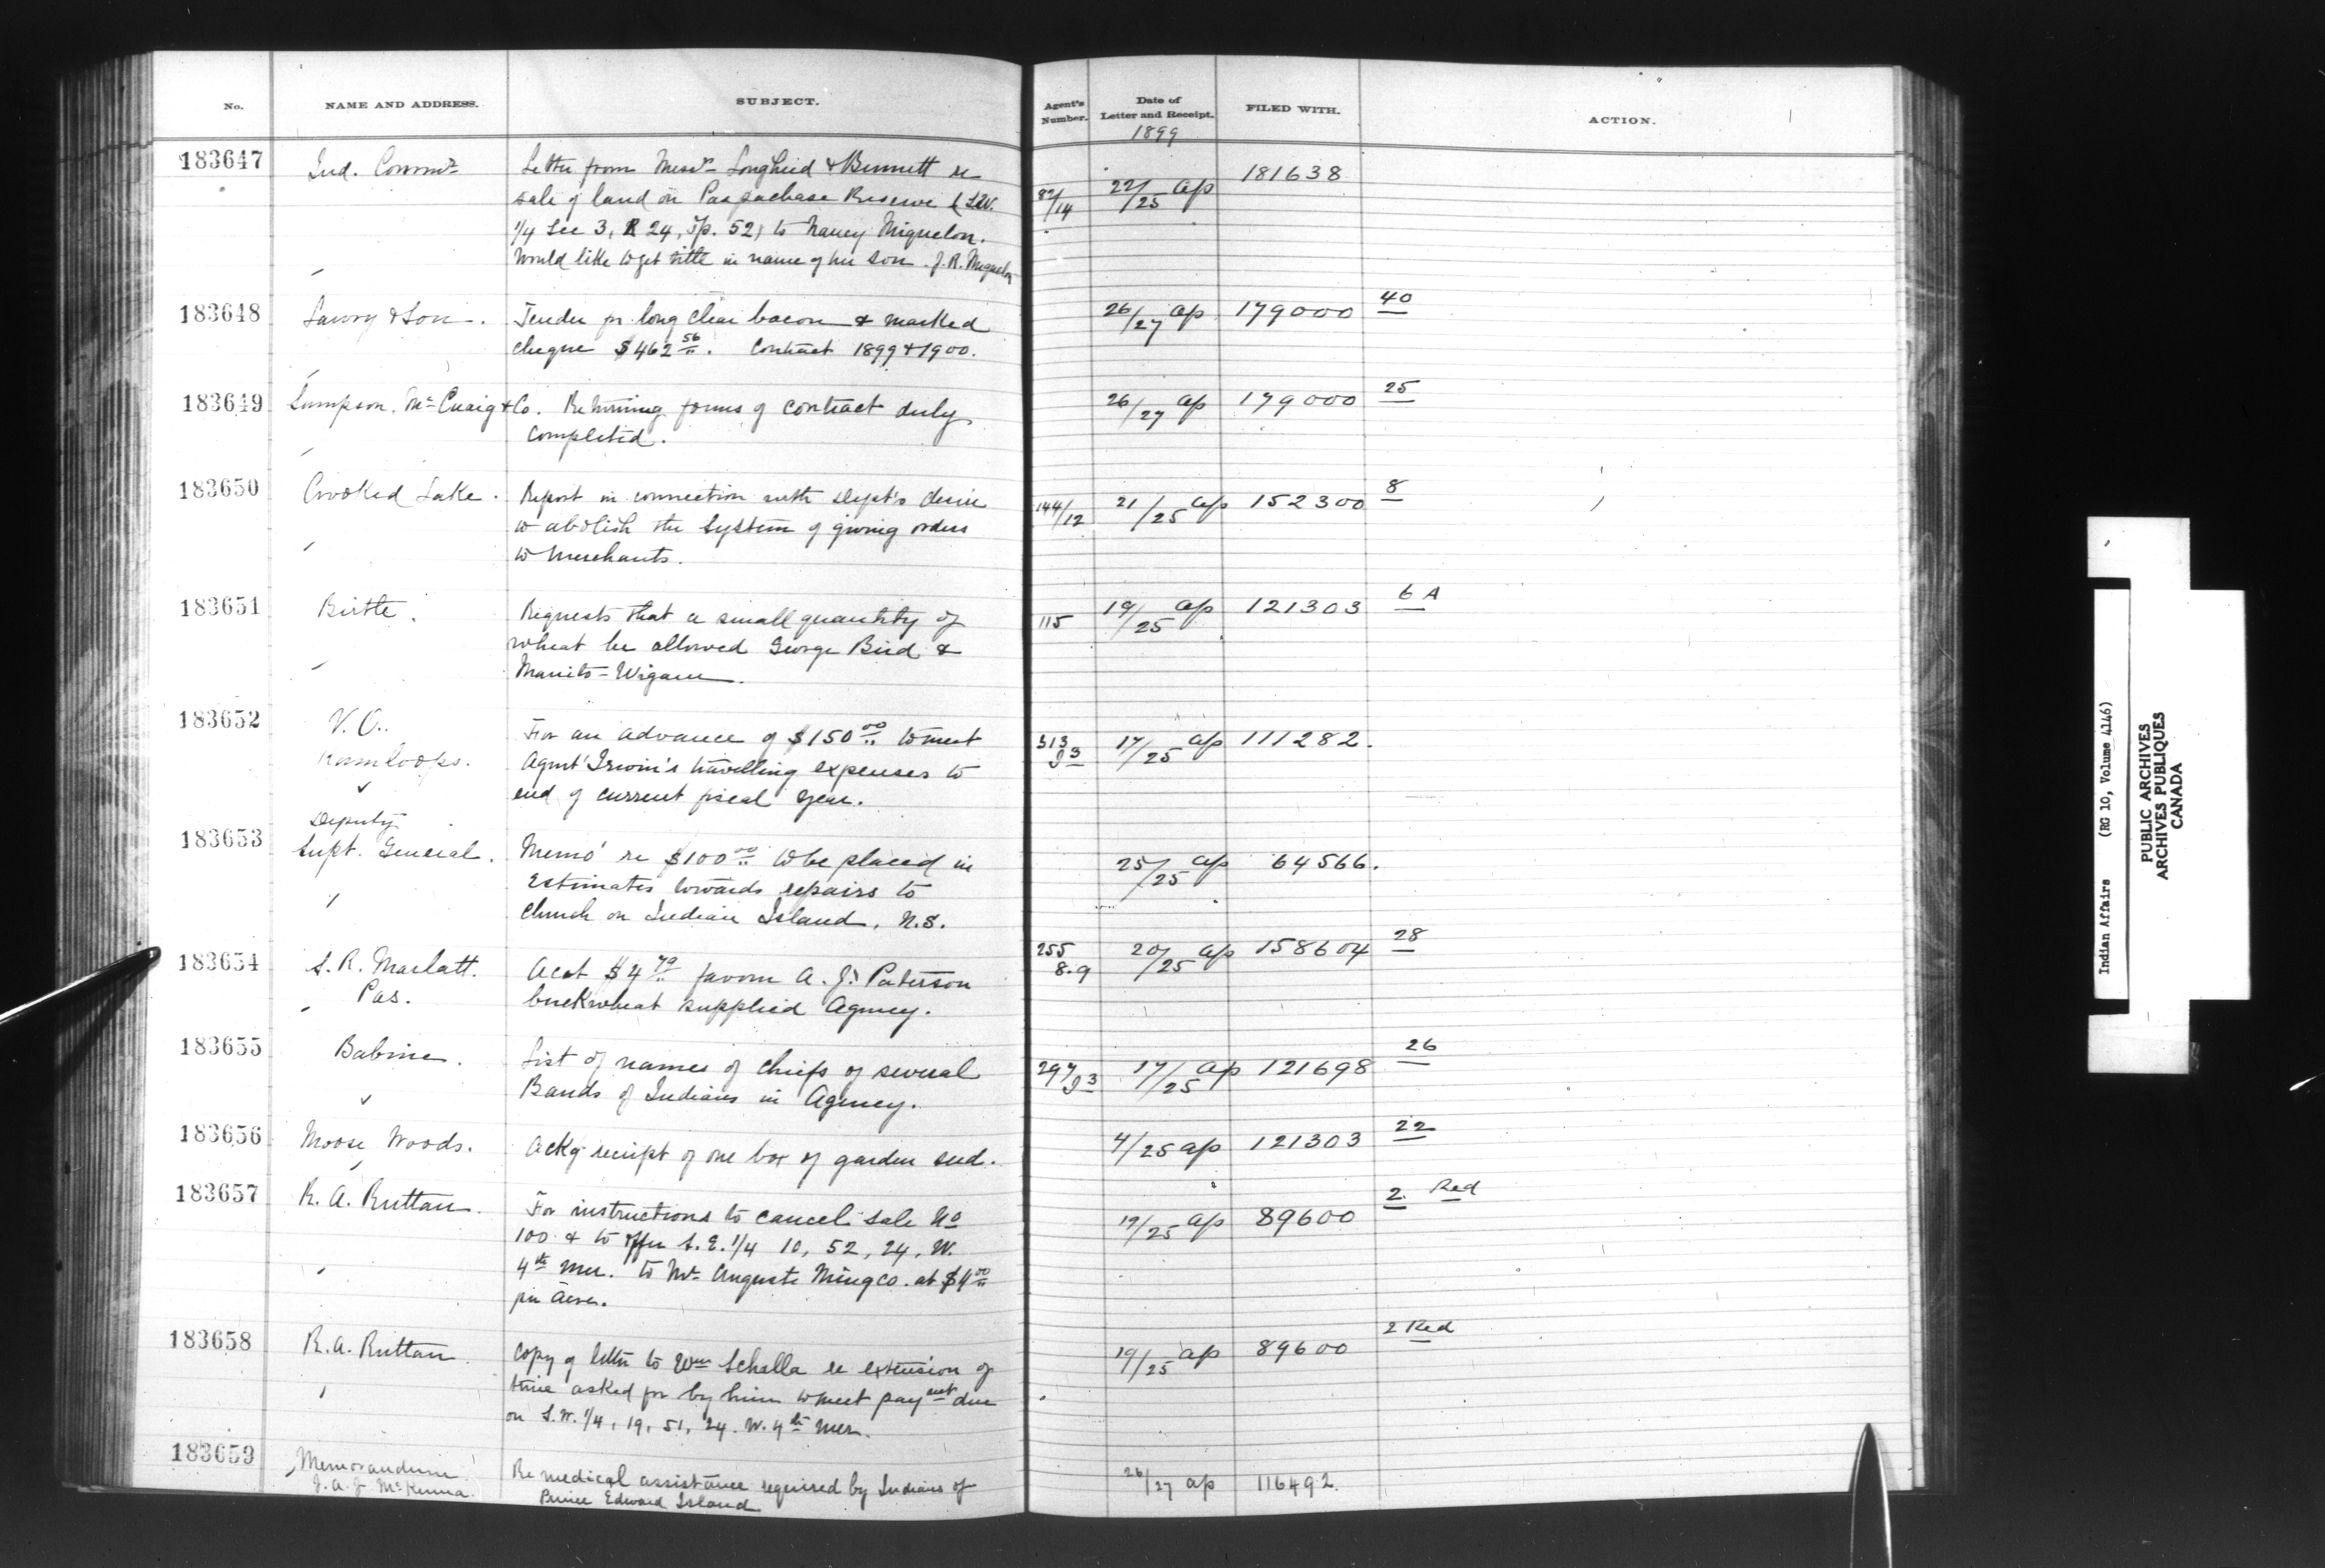 No. NAME AND ADDRESS. SUBJECT. Agent's Number. Date of Letter and Receipt. FILED WITH. ACTION.
1899
183647 Ind. Commr Letter from Messrs Lougheed & Bennett re 82/14 22/25 ap 181638
sale of land on Paspachase Reserve (S.W.
1/4 Sec 3, R 24, Tp. 52) to Nancy Miquelon.
Would like to get title in name of her son. J. R. Miquelon
183648 Savory & Son. Tender for long clear bacon & marked 26/27 ap 179000 40
cheque $462 56. Contract 1899 & 1900.
183649 Sampson, McCuaig & Co. Returning forms of contract duly 26/27 ap 179000 25
completed.
183650 Crooked Lake. Report in connection with Dept's desire 144/12 21/25 ap 152300 8
to abolish the system of giving orders
to merchants.
183651 Birtle. Requests that a small quantity of 115 19/25 ap 121303 6 A
wheat be allowed George Bird &
Manito-Wigam.
183652 V. O. For an advance of $150 00 to meet 313 J3 17/25 ap 111282.
Kamloops. Agent Irwin's travelling expenses to
end of current fiscal year.
Deputy
183653 Supt. General. Memo' re $100 00 to be placed in 25/25 ap 64566.
Estimates towards repairs to
Church on Indian Island, N.S.
183654 S. R. Marlatt. Acct $4 70 favour A. J. Paterson 255 8.9 20/25 ap 158604 28
Pas. buckwheat supplied Agency.
183655 Babine. List of names of Chiefs of several 297 J3 17/25 ap 121698 26
Bands of Indians in Agency.
183656 Moose Woods. Ackg receipt of one box of garden seed. 4/25 ap 121303 22
183657 R. A. Ruttan. For instructions to cancel sale No 19/25 ap 89600 2. Red
100 & to offer S.E. 1/4 10, 52, 24, W.
4th Mer. to Mr Auguste Mingco. at $4 00
per Acre.
183658 R. A. Ruttan. Copy of letter to Wm Schalla re extension of 19/25 ap 89600 2 Red
time asked for by him to meet payment due
on S.W. 1/4, 19, 51, 24. W. 4th Mer.
183659 Memorandum Re medical assistance required by Indians of 26/27 ap 116492.
J. A. J. McKenna. Prince Edward Island
Indian Affairs (RG 10, Volume 4146)
PUBLIC ARCHIVES
ARCHIVES PUBLIQUES
CANADA